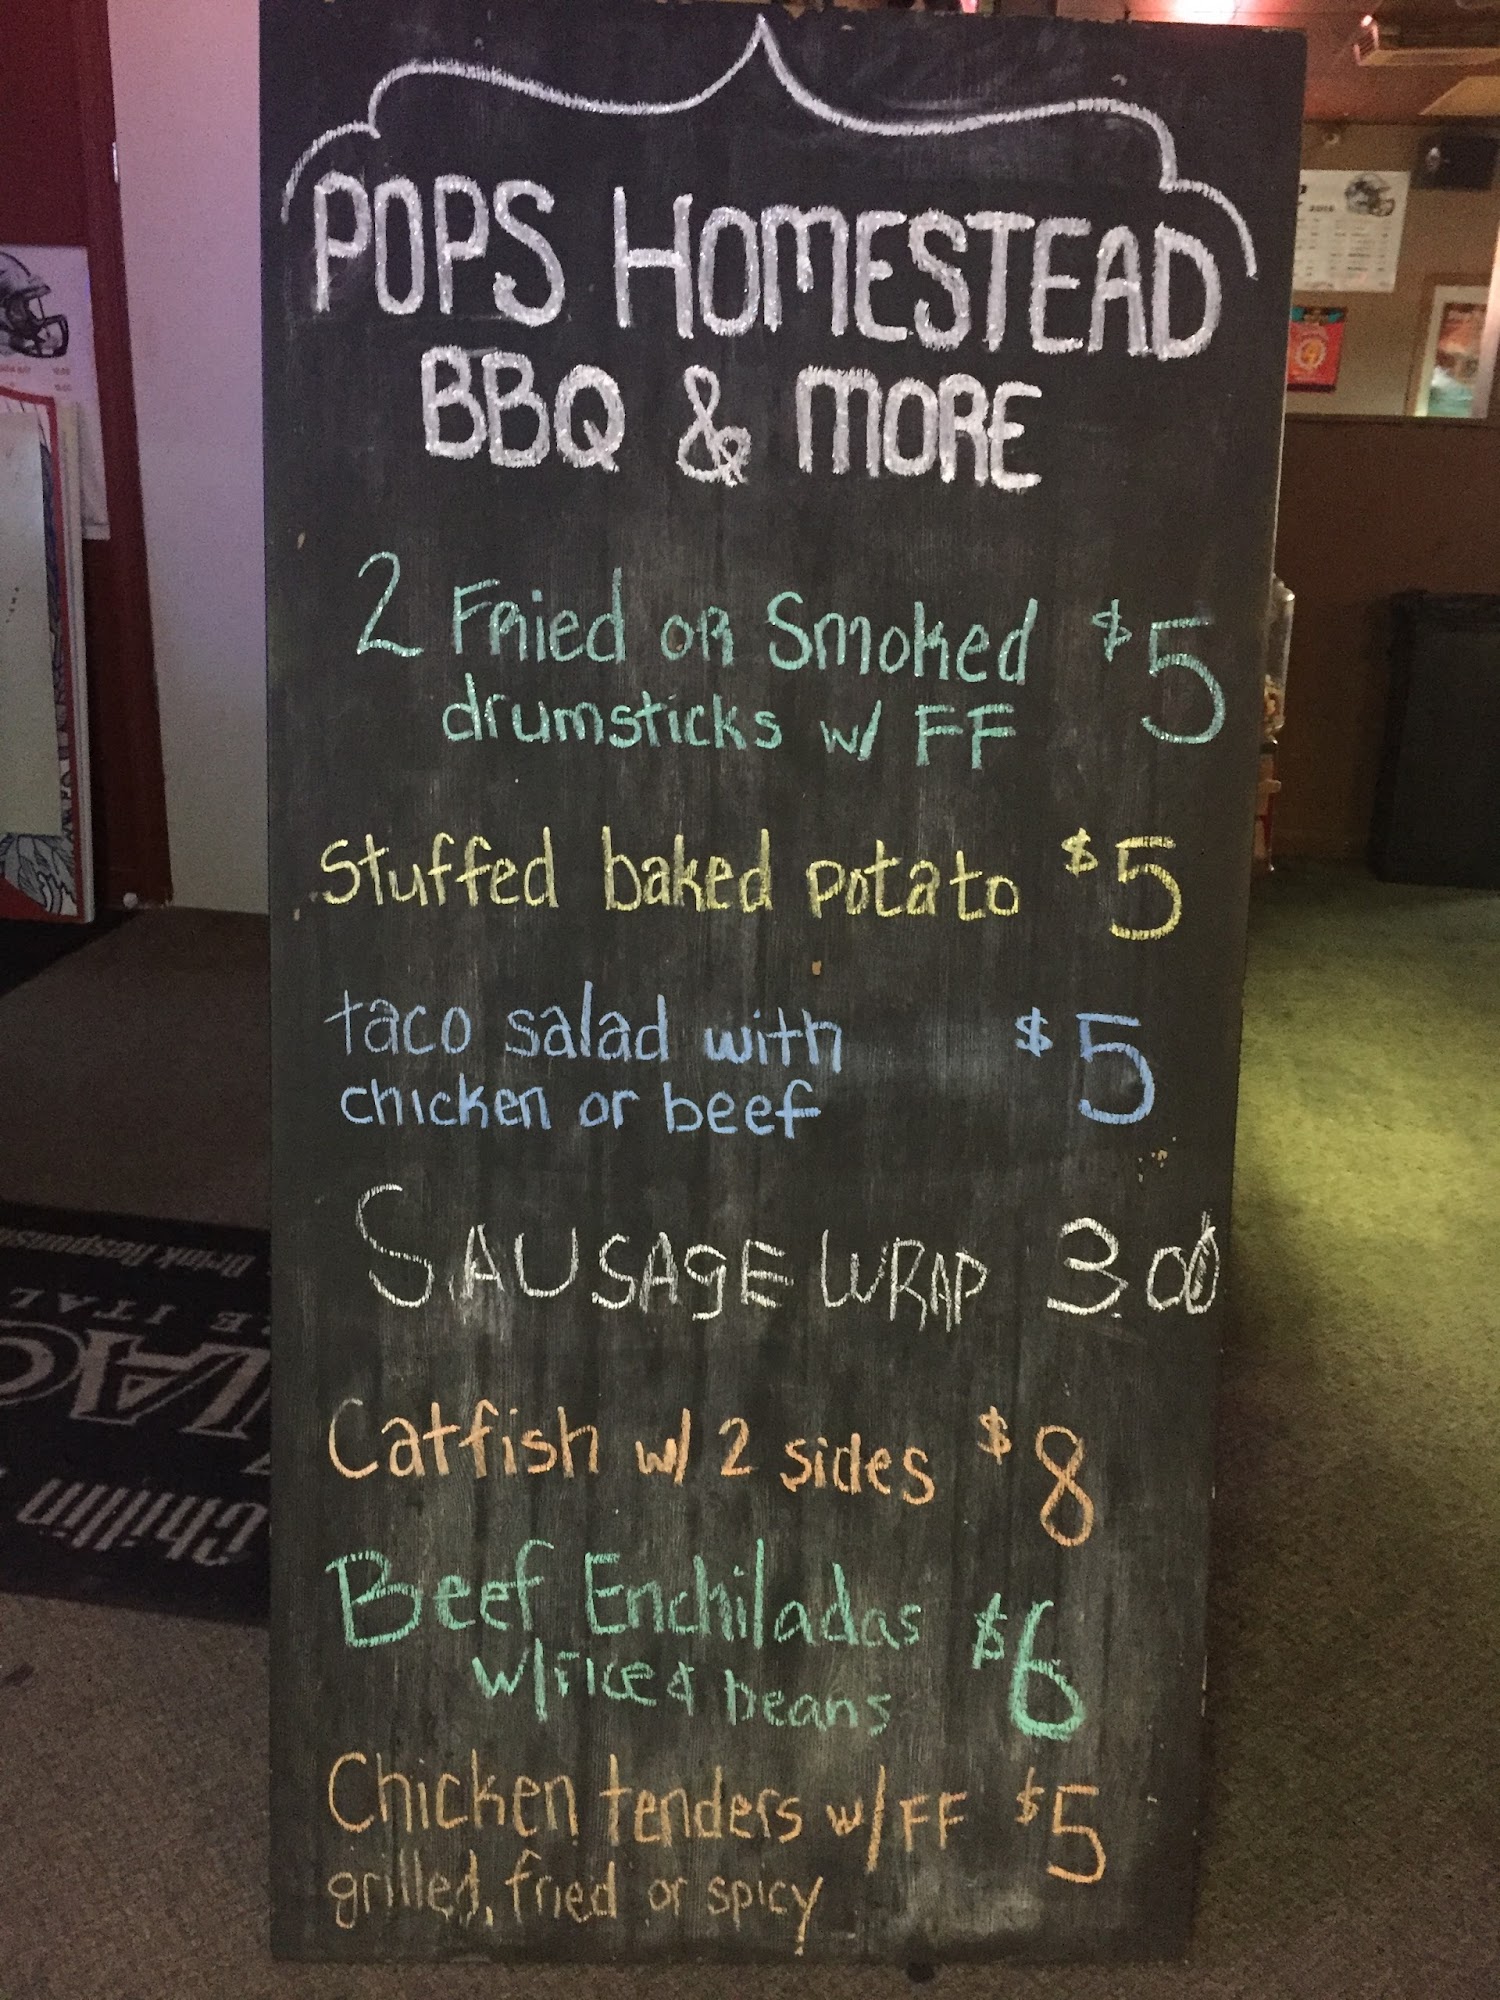 POPS HOMESTEAD
BBQ & MORE
2 Fried or Smoked $5
drumsticks w/ FF
Stuffed baked potato $5
taco salad with $5
chicken or beef
SAUSAGE WRAP 3.00
Catfish w/ 2 sides $8
Beef Enchiladas $6
w/rice & beans
Chicken tenders w/FF $5
grilled, fried or spicy
2016
Drink Respons
E ITAL
Chillin